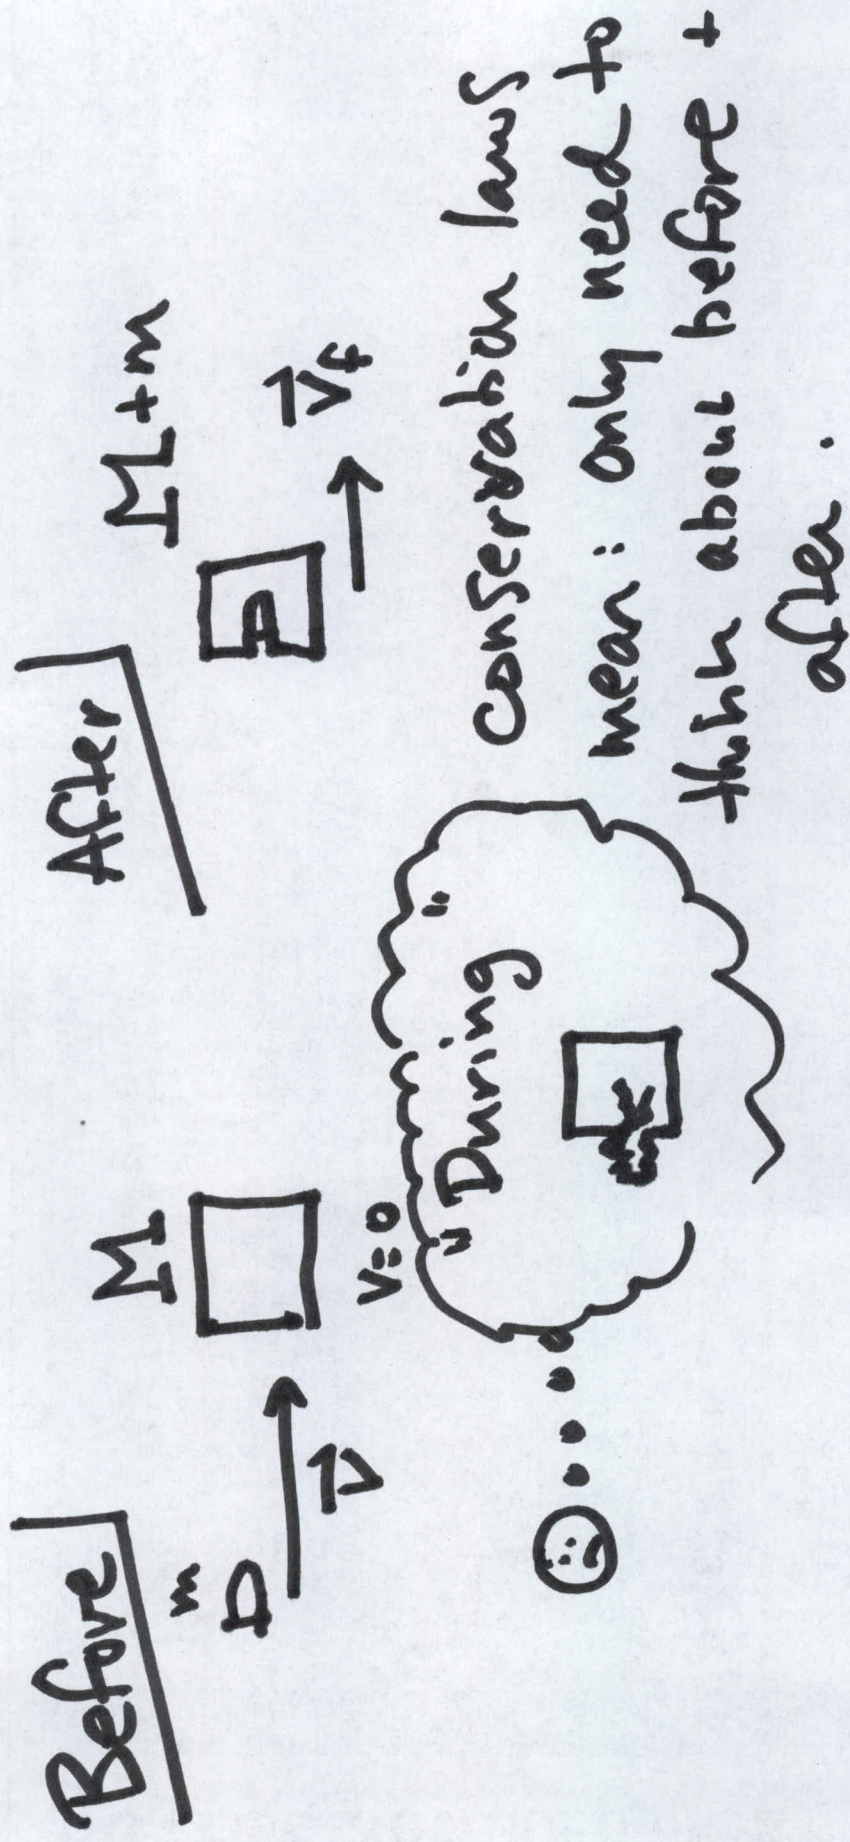 Before
After
m
M
M+m
V
V=0
Vf
"During"
conservation laws
mean: only need to
think about before +
after.